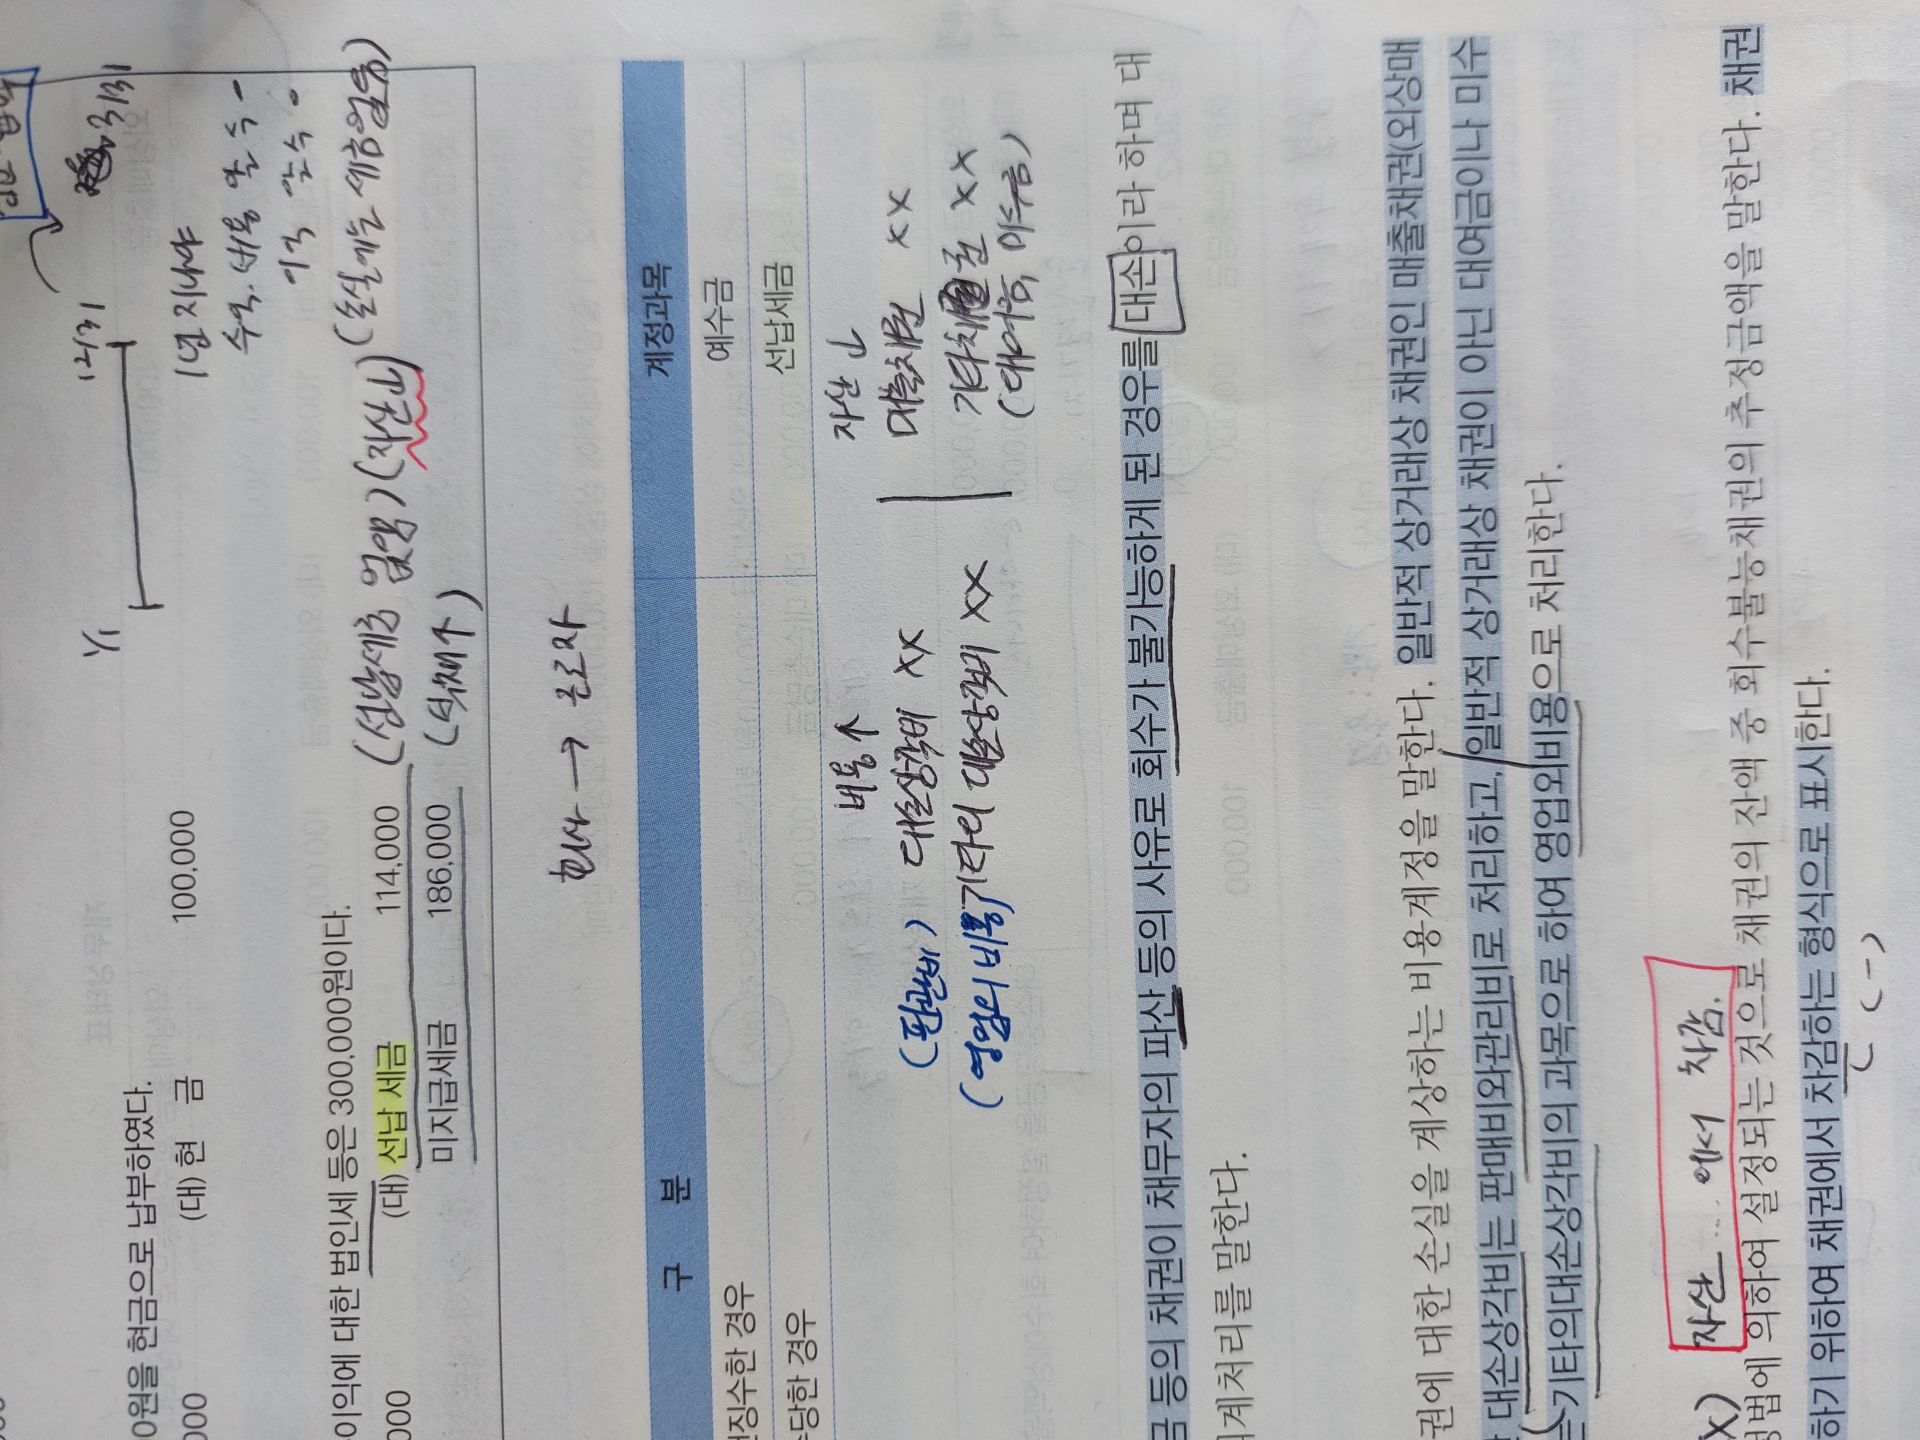 1/1 12/31 3/31
0원을 현금으로 납부하였다.
000 (대) 현 금 100,000
1년 지나야
수익·비용 알 수
이익 알 수
이익에 대한 법인세 등은 300,000원이다.
000 (대) 선납 세금 114,000 (선납세금 없앰) (자산↓) (손실에는 세금 없음)
미지급세금 186,000 (부채↑)
회사 → 근로자
구 분 계정과목
징수한 경우 예수금
당한 경우 선납세금
비용↑ 자산↓
(판관비) 대손상각비 XX 매출채권 XX
(영업외비용) 기타의 대손상각비 XX 기타채권 XX
(대여금, 미수금)
금 등의 채권이 채무자의 파산 등의 사유로 회수가 불가능하게 된 경우를 대손이라 하며 대
계처리를 말한다.
권에 대한 손실을 계상하는 비용계정을 말한다. 일반적 상거래상 채권인 매출채권(외상매
대손상각비는 판매비와관리비로 처리하고, 일반적 상거래상 채권이 아닌 대여금이나 미수
기타의대손상각비의 과목으로 하여 영업외비용으로 처리한다.
자산 에서 차감.
X)
법에 의하여 설정되는 것으로 채권의 잔액 중 회수불능채권의 추정금액을 말한다. 채권
하기 위하여 채권에서 차감하는 형식으로 표시한다.
(-)